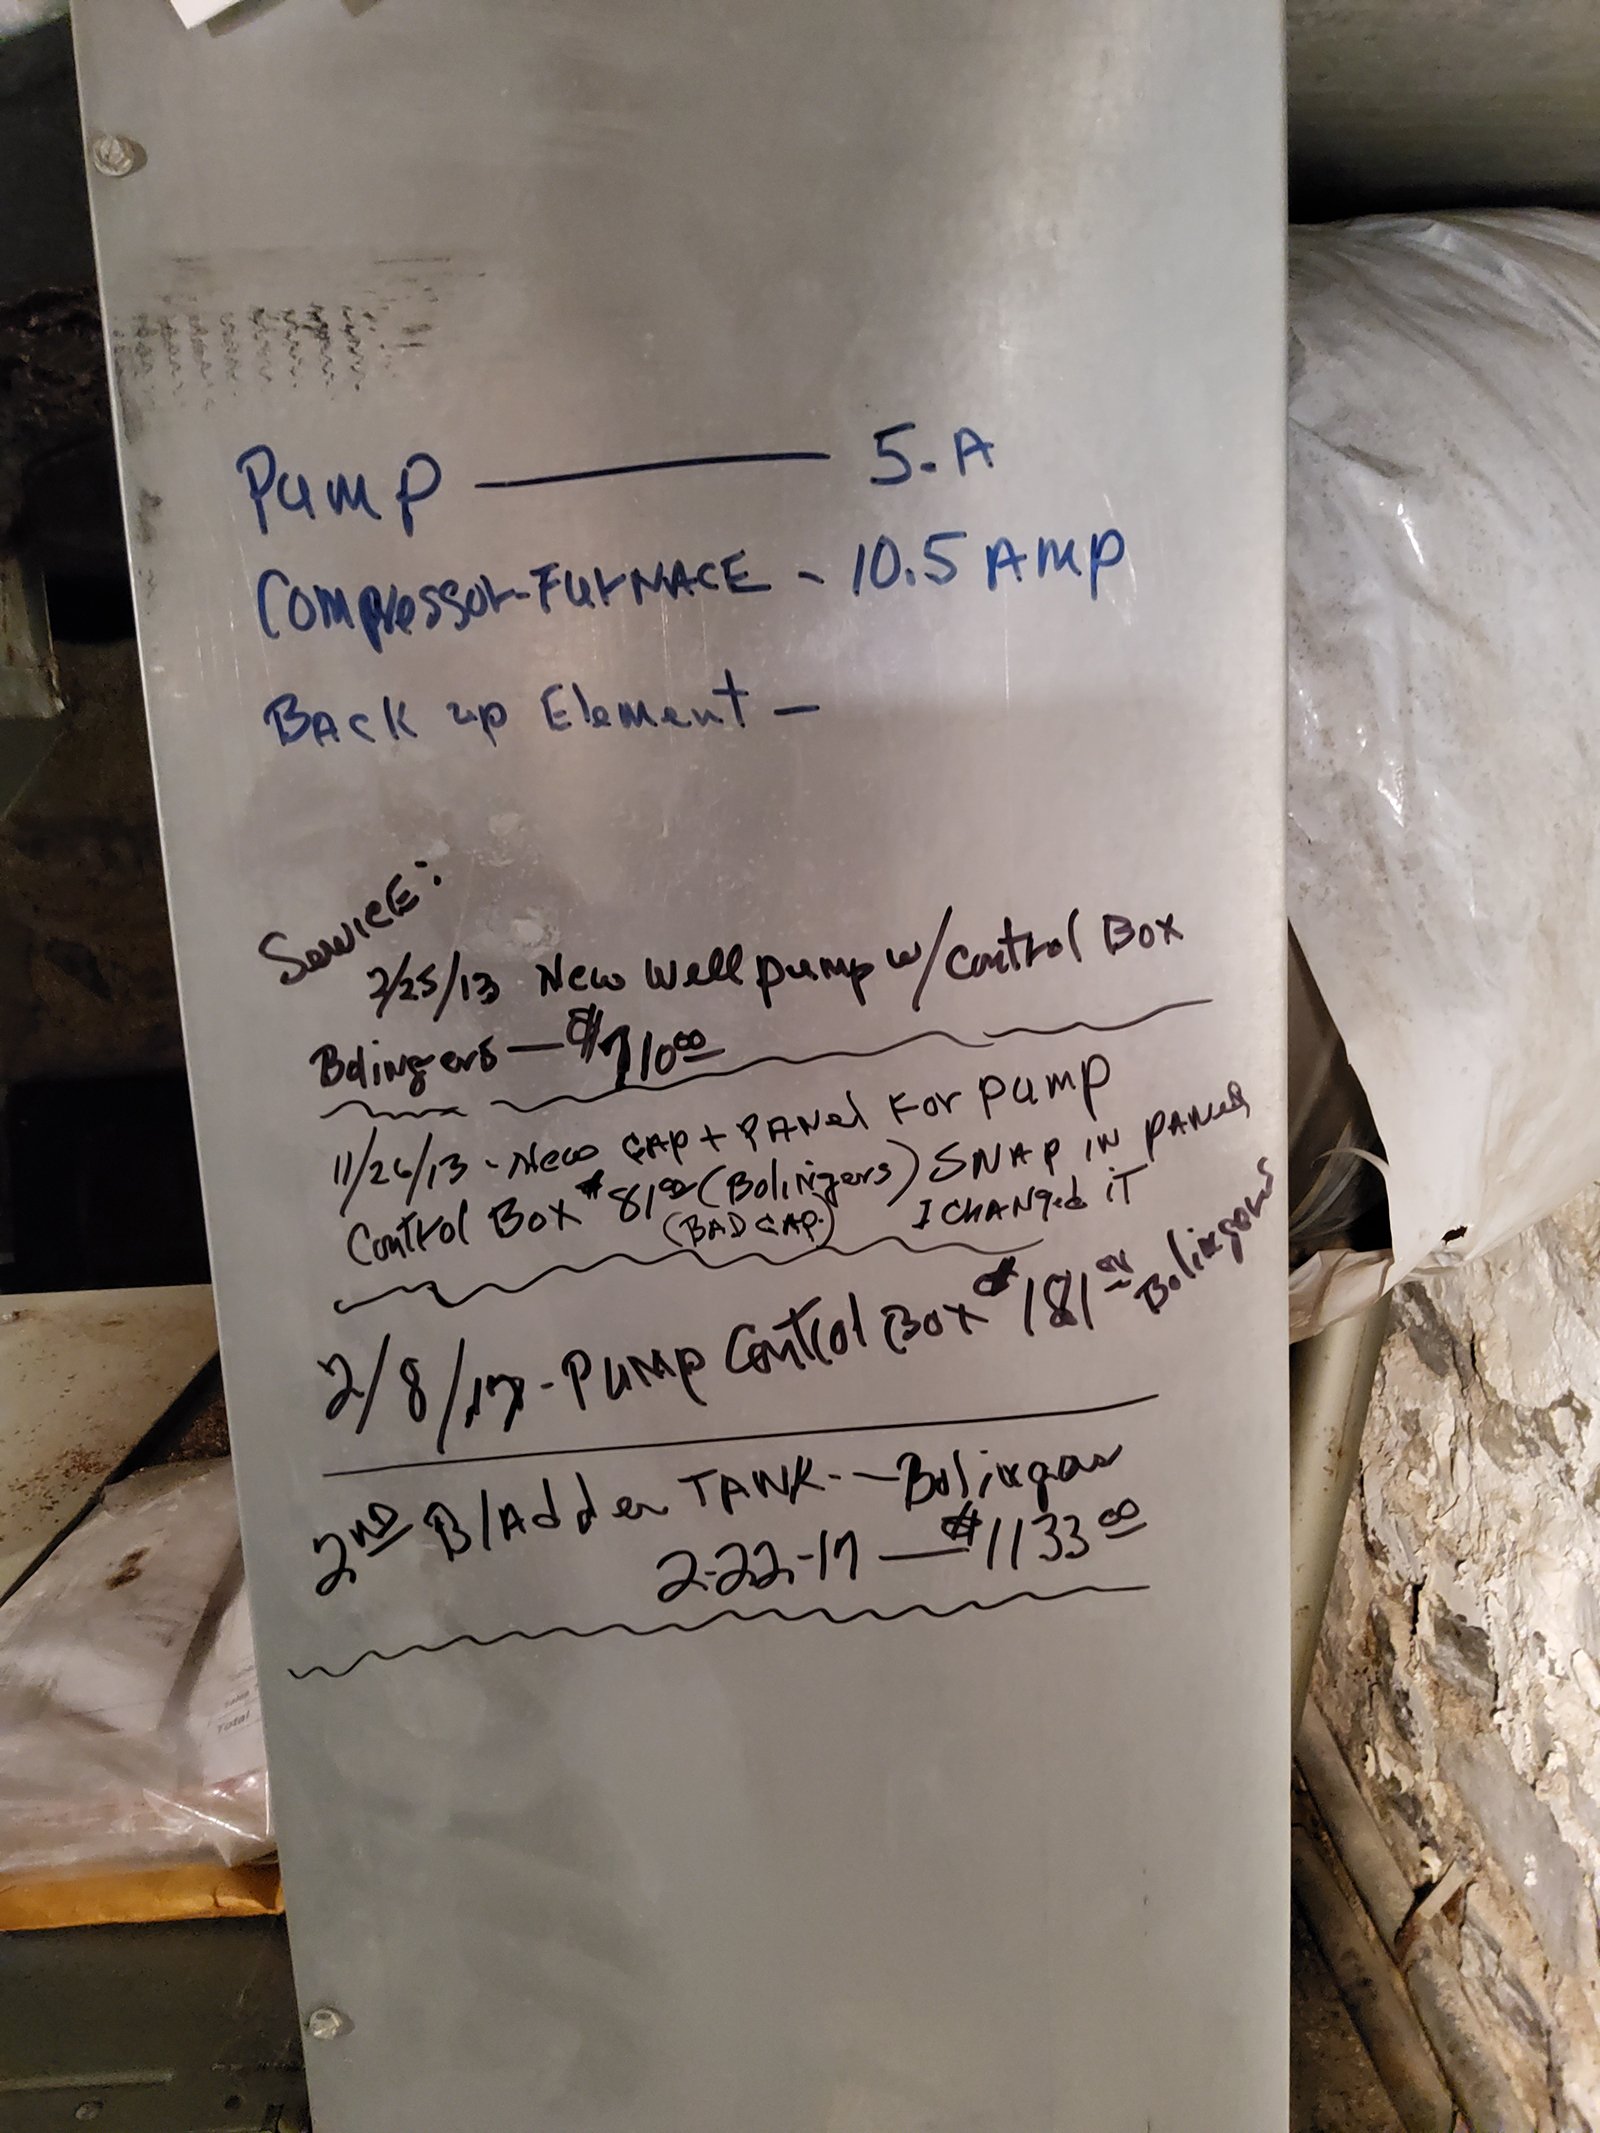 Pump — 5.A
Compressor-Furnace - 10.5 Amp
Back up Element -
Service:
2/25/13 New well pump w/control Box
Bolingers — $710.00
11/26/13 - New cap + panel For pump
Control Box $81.00 (Bolingers) SNAP IN panel
(BAD CAP.) I changed it
2/8/17 - Pump Control Box $181 Bolingers
2nd Bladder TANK - Bolinger
2-22-17 — $1133.00
Total